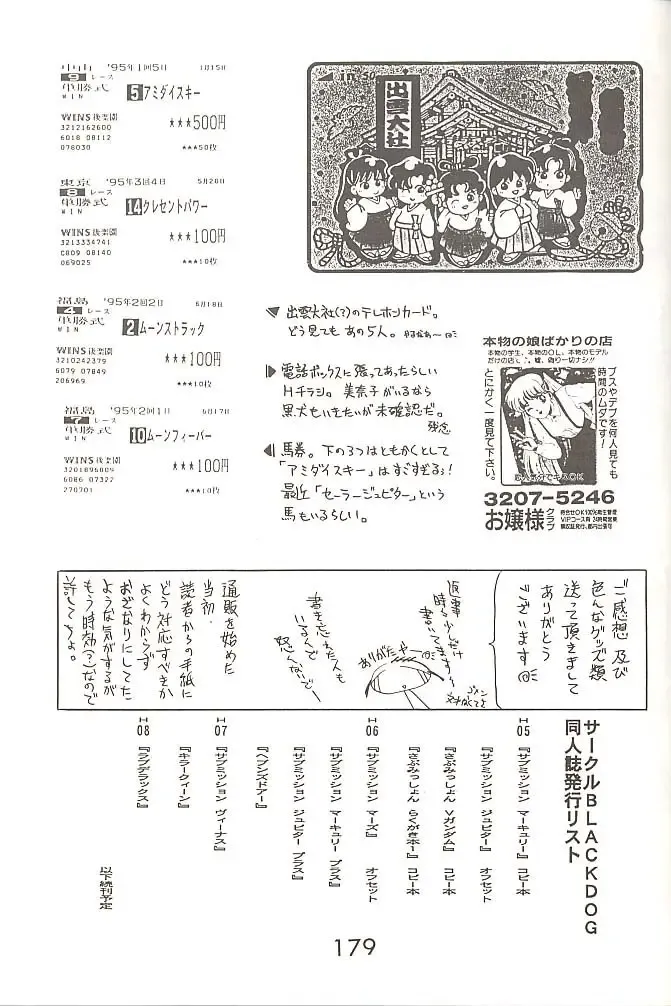 中山 '95年1回5日 1月15日
9 レース
単勝式 5 アミダイスキー
WIN
WINS後楽園 ★★★500円
3212162600
6018 08112
078030 ★★★50枚
東京 '95年3回4日 5月28日
8 レース
単勝式 14 クレセントパワー
WIN
WINS後楽園 ★★★100円
3213334741
C809 08140
069025 ★★★10枚
福島 '95年2回2日 6月18日
4 レース
単勝式 2 ムーンストラック
WIN
WINS後楽園 ★★★100円
3210242379
6079 07849
206969 ★★★10枚
福島 '95年2回1日 6月17日
7 レース
単勝式 10 ムーンフィーバー
WIN
WINS後楽園 ★★★100円
3201896809
6086 07322
270701 ★★★10枚
50
出雲大社
出雲大社(?)のテレホンカード。
どう見てもあの5人。
電話ボックスに張ってあったらしい
Hチラシ。美奈子がいるなら
黒犬もいきたいが未確認だ。
残念
馬券。下の3つはともかくとして
「アミダイスキー」はすごすぎる!
最近「セーラージュピター」という
馬もいるらしい。
本物の娘ばかりの店
本物の学生、本物のOL、本物のモデル
だけの店で、嘘、偽り一切ナシ!!
ブスやデブを何人見ても
時間のムダです!
とにかく一度見て下さい。
恋人気分でキスOK
3207-5246
お嬢様クラブ
待合せOK100%衛生管理
VIPコース有 24時間営業
領収証発行、都内出張可
ご感想 及び
色んなグッズ類
送って頂きまして
ありがとう
ございます
返事
時々少しだけ
書いてますが
ありがたや
書き忘れた人も
いるんで
怒んないで
通販を始めた
当初、
読者からの手紙に
どう対応すべきか
よくわからず
おざなりにしてた
ような気がするが
もう時効(?)なので
許してちょ。
サークルBLACKDOG
同人誌発行リスト
H05
『サブミッション マーキュリー』 コピー本
『サブミッション ジュピター』 オフセット
『さぶみっしょん Vガンダム』 コピー本
『さぶみっしょん らくがきホー』 コピー本
H06
『サブミッション マーズ』 オフセット
『サブミッション マーキュリー プラス』
『サブミッション ジュピター プラス』
『ヘブンズドアー』
H07
『サブミッション ヴィーナス』
『キラークィーン』
H08
『ラブデラックス』
以下続刊予定
179